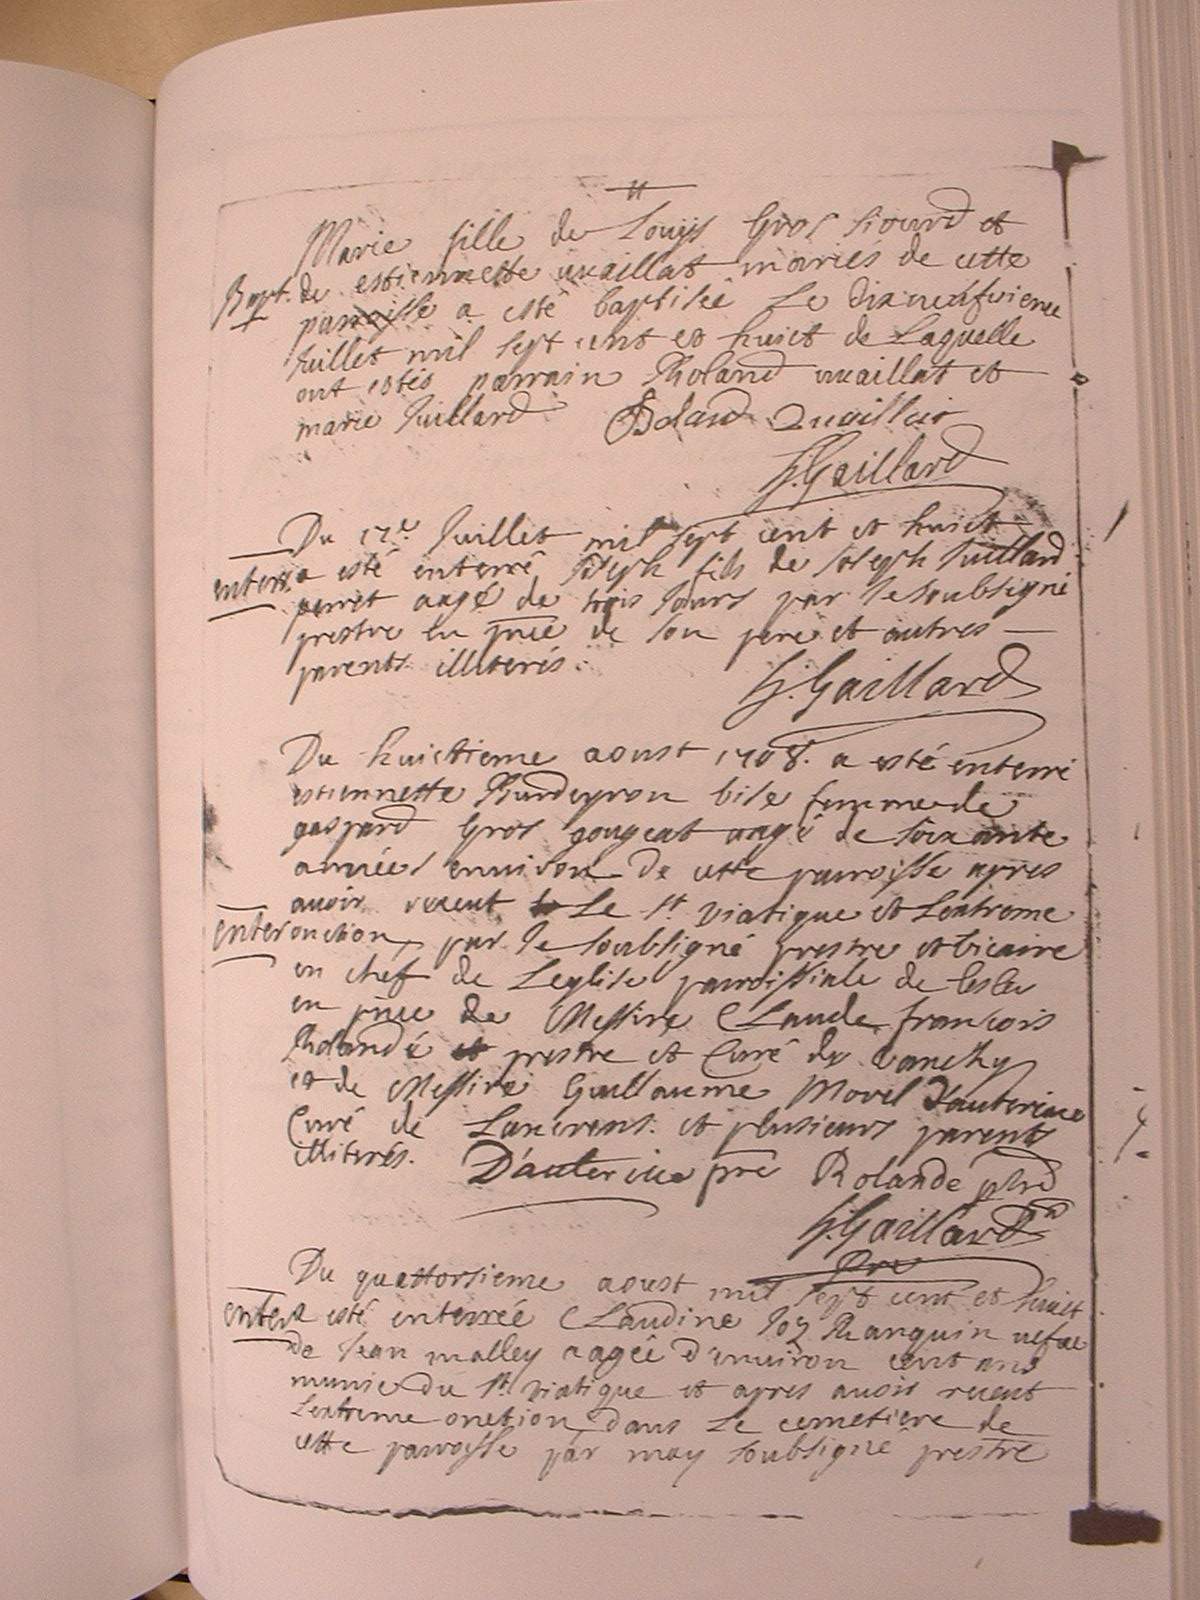 11
Marie fille de Louys Gros Siourd et
Bapt. de estiennette uuaillat mariés de cette
paroisse a esté baptisée Le dixneufuieme
Juillet mil sept cent et huict de Laquelle
ont estés parrain Roland uuaillat et
marie Juillard Roland Vuaillat
G. Gaillard
Du 17e Juillet mil sept cent et huict
enterr. a esté enterré Joseph fils de Joseph Juillard
perret aagé de trois Jours par le soubsigné
prestre en pnce de son pere et autres
parents illiterés.
G. Gaillard
Du huictieme aoust 1708. a esté enterré
estiennette femme de
gaspard Gros gougeat aagé de soixante
années enuiron de cette paroisse apres
auoir receut Le St. viatique et Lextreme
Enter onction par le soubsigné prestre et vicaire
en chef de Leglise paroissiale de
en pnce de Messire Claude francois
Rolandé prestre et Curé de
et de Messire Guillaume Morel D'auteriue
Curé de Lancrens. et plusieurs parents
illiterés. D'auteriue pre Rolande
G. Gaillard
pre
Du quattorsieme aoust mil sept cent et huict
enter a esté enterrée Claudine Joz Ranguin uefue
de Jean malley aagée d'enuiron cent ans
munie du St. viatique et apres auoir receut
Lextreme onction dans Le cemetiere de
cette paroisse par moy soubsigné prestre